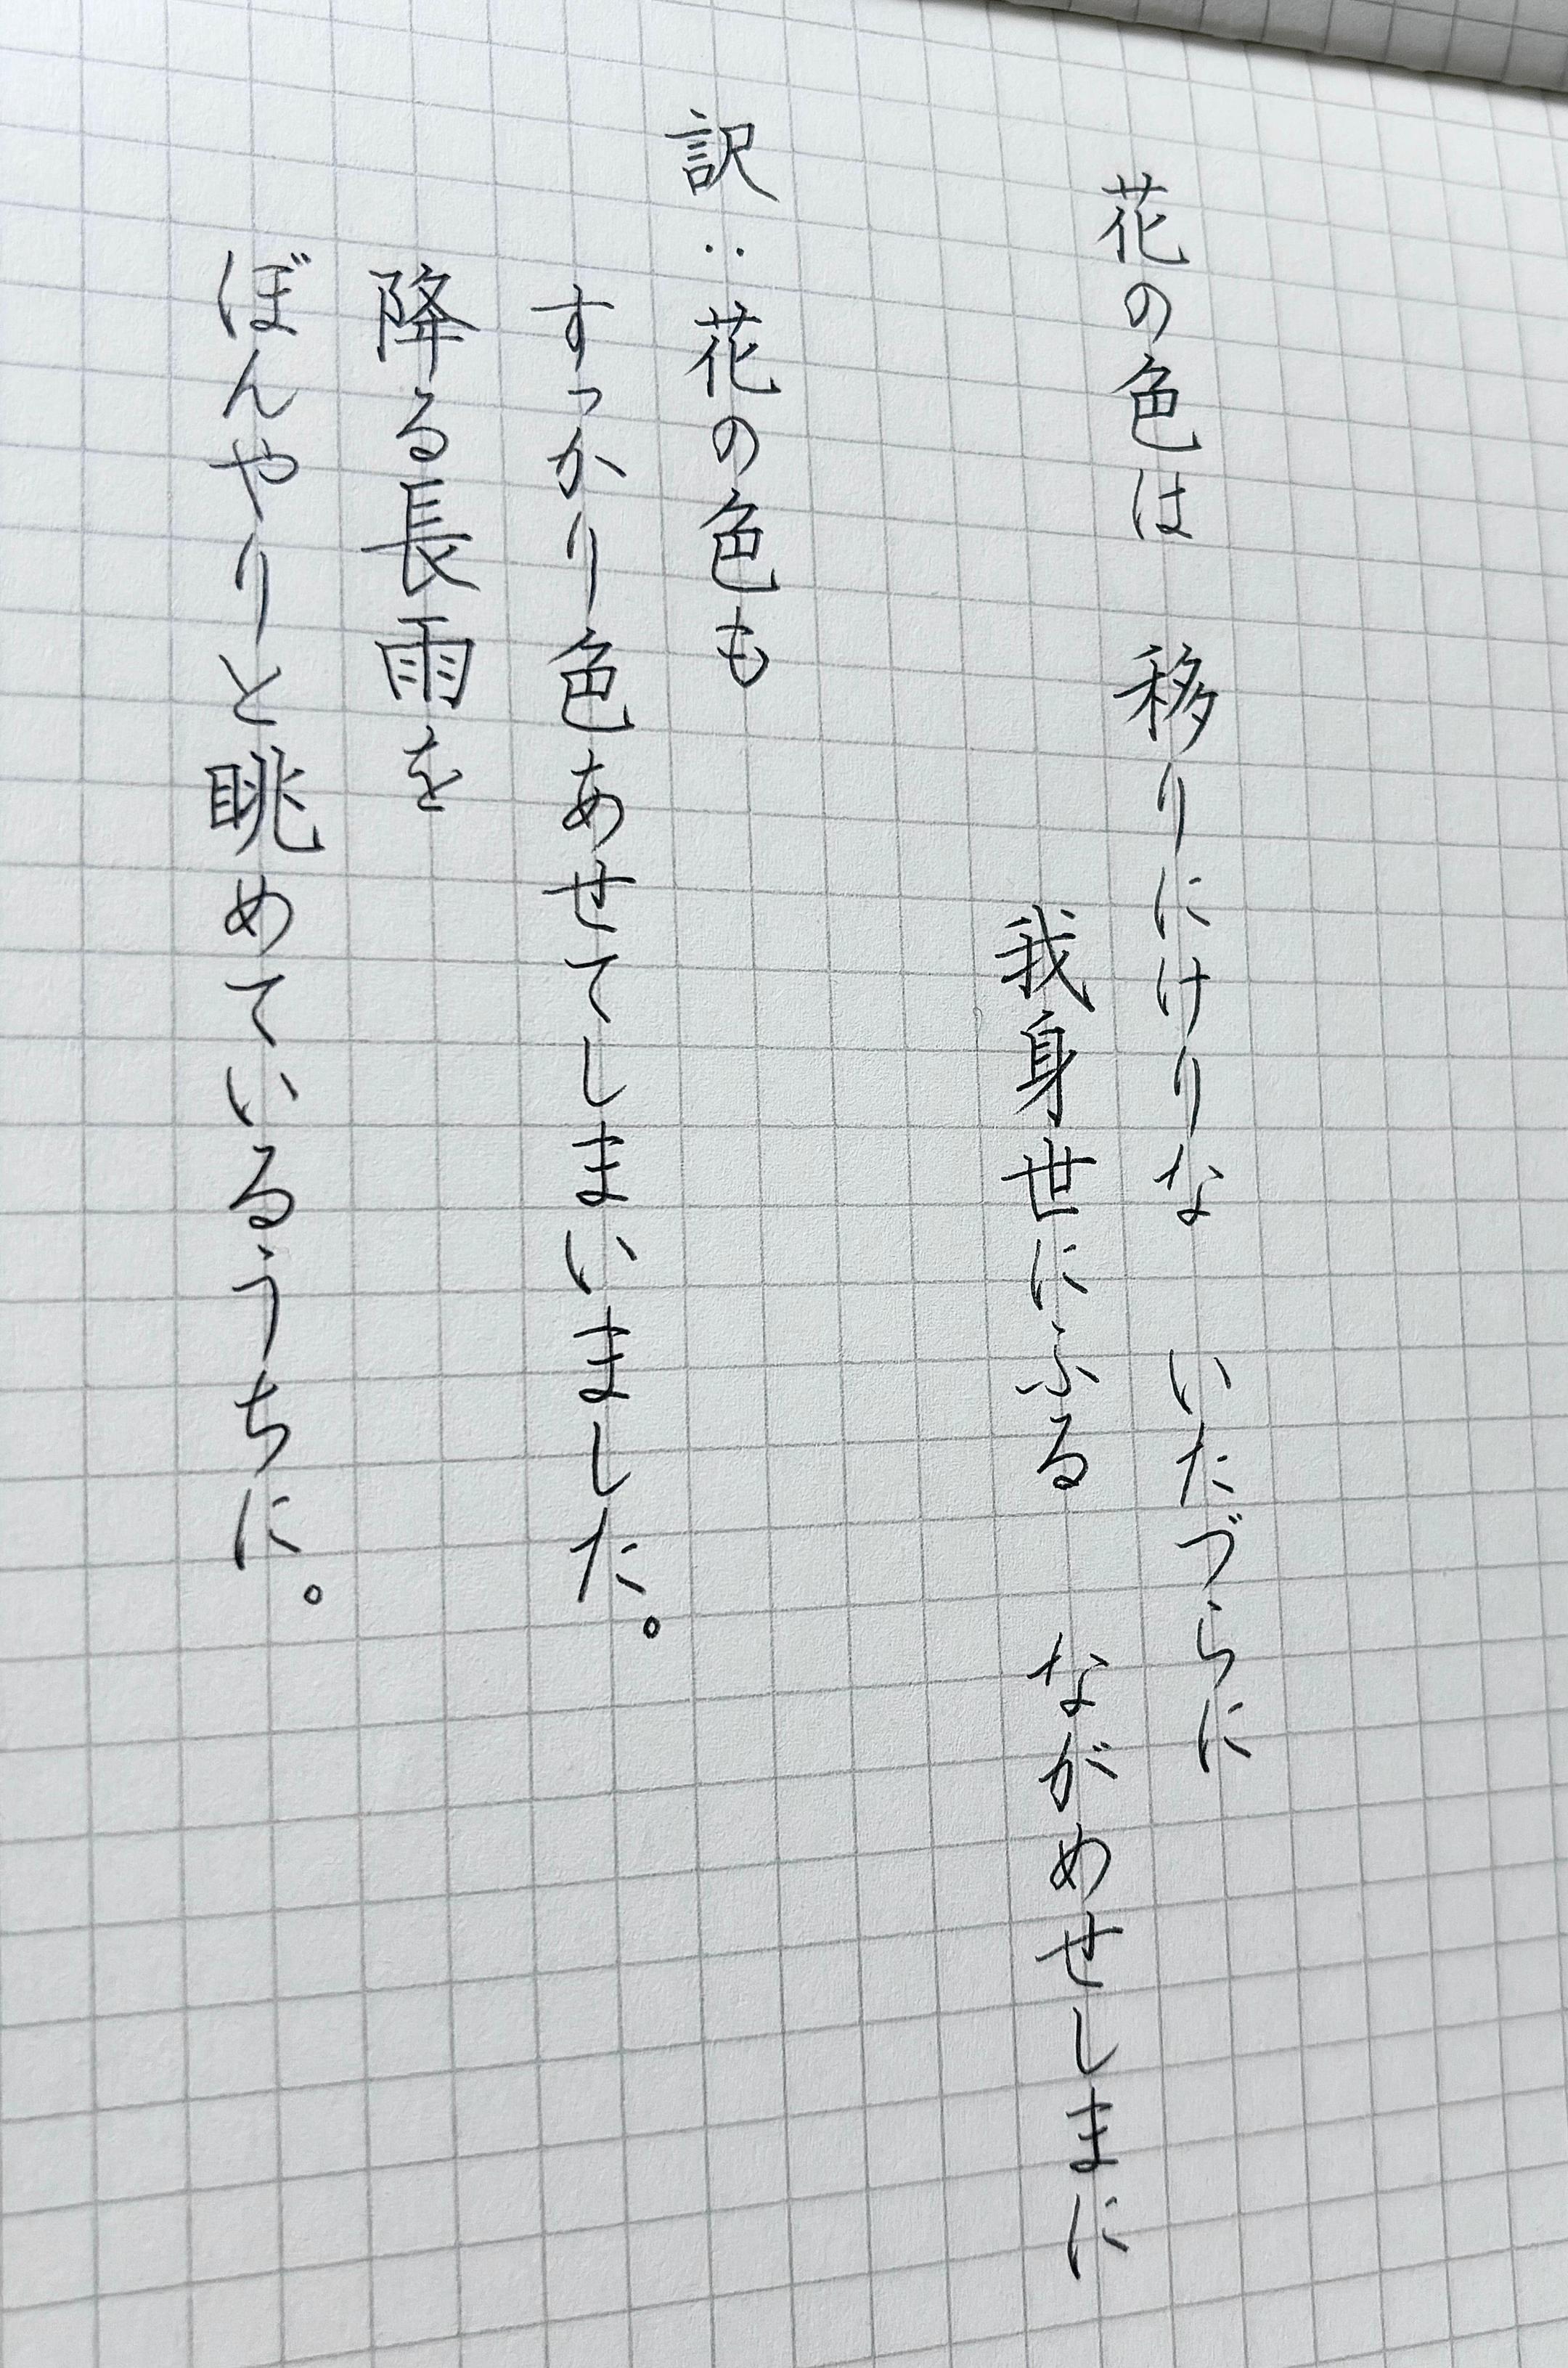 花の色は　移りにけりな　いたづらに
我身世にふる　ながめせしまに
訳：花の色も
すっかり色あせてしまいました。
降る長雨を
ぼんやりと眺めているうちに。